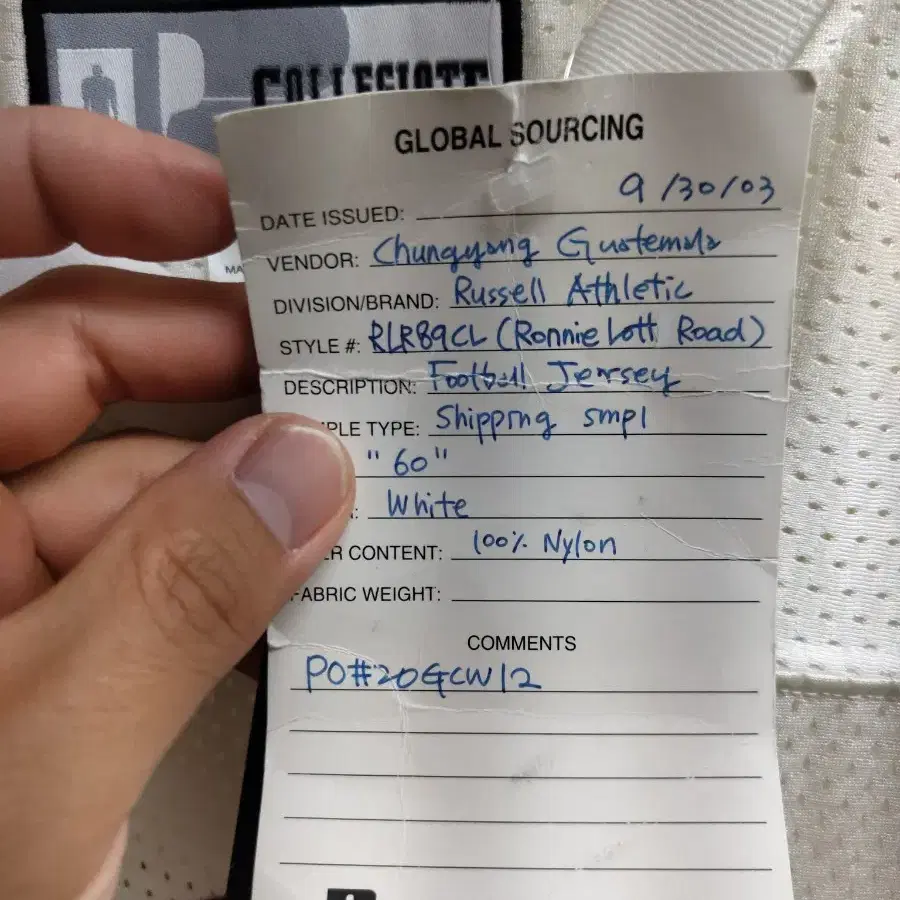 COLLEGIATE
GLOBAL SOURCING
DATE ISSUED: 9/30/03
VENDOR: Chungyang Guatemala
DIVISION/BRAND: Russell Athletic
STYLE #: RLR89CL (Ronnie Lott Road)
DESCRIPTION: Football Jersey
PLE TYPE: Shipping smpl
"60"
: White
R CONTENT: 100% Nylon
FABRIC WEIGHT:
COMMENTS
PO#20GCW12